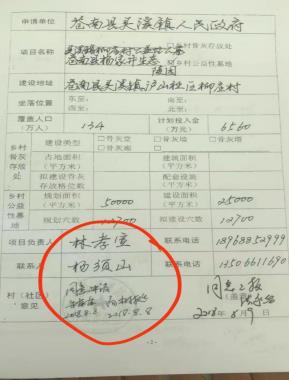 申请单位 苍南县灵溪镇人民政府
项目名称 乡村骨灰存放处
苍南县 乡村公益性墓地
陵园
建设地址 苍南县灵溪镇沪山社区柳庄村
坐落位置 东至： 南至：
西至： 北至：
覆盖人口（万人） 134 计划投入金（万元） 6560
乡村骨灰存放处 建设类型 □骨灰堂 □骨灰墙 □骨灰塔
占地面积（平方米） 建筑面积（平方米）
拟建设骨灰存放格位数 配套设施（平方米）
乡村公益性墓地 规划面积（平方米） 50000 建设面积（平方米） 25000
规划穴数 拟建设穴数 12700
项目负责人 林孝 联系电话 18968852999
联系人 杨须山 联系电话 13506611690
村（社区）意见 同意申请 2018.8.8
2018.8.8
同意上报
2018年8月9日